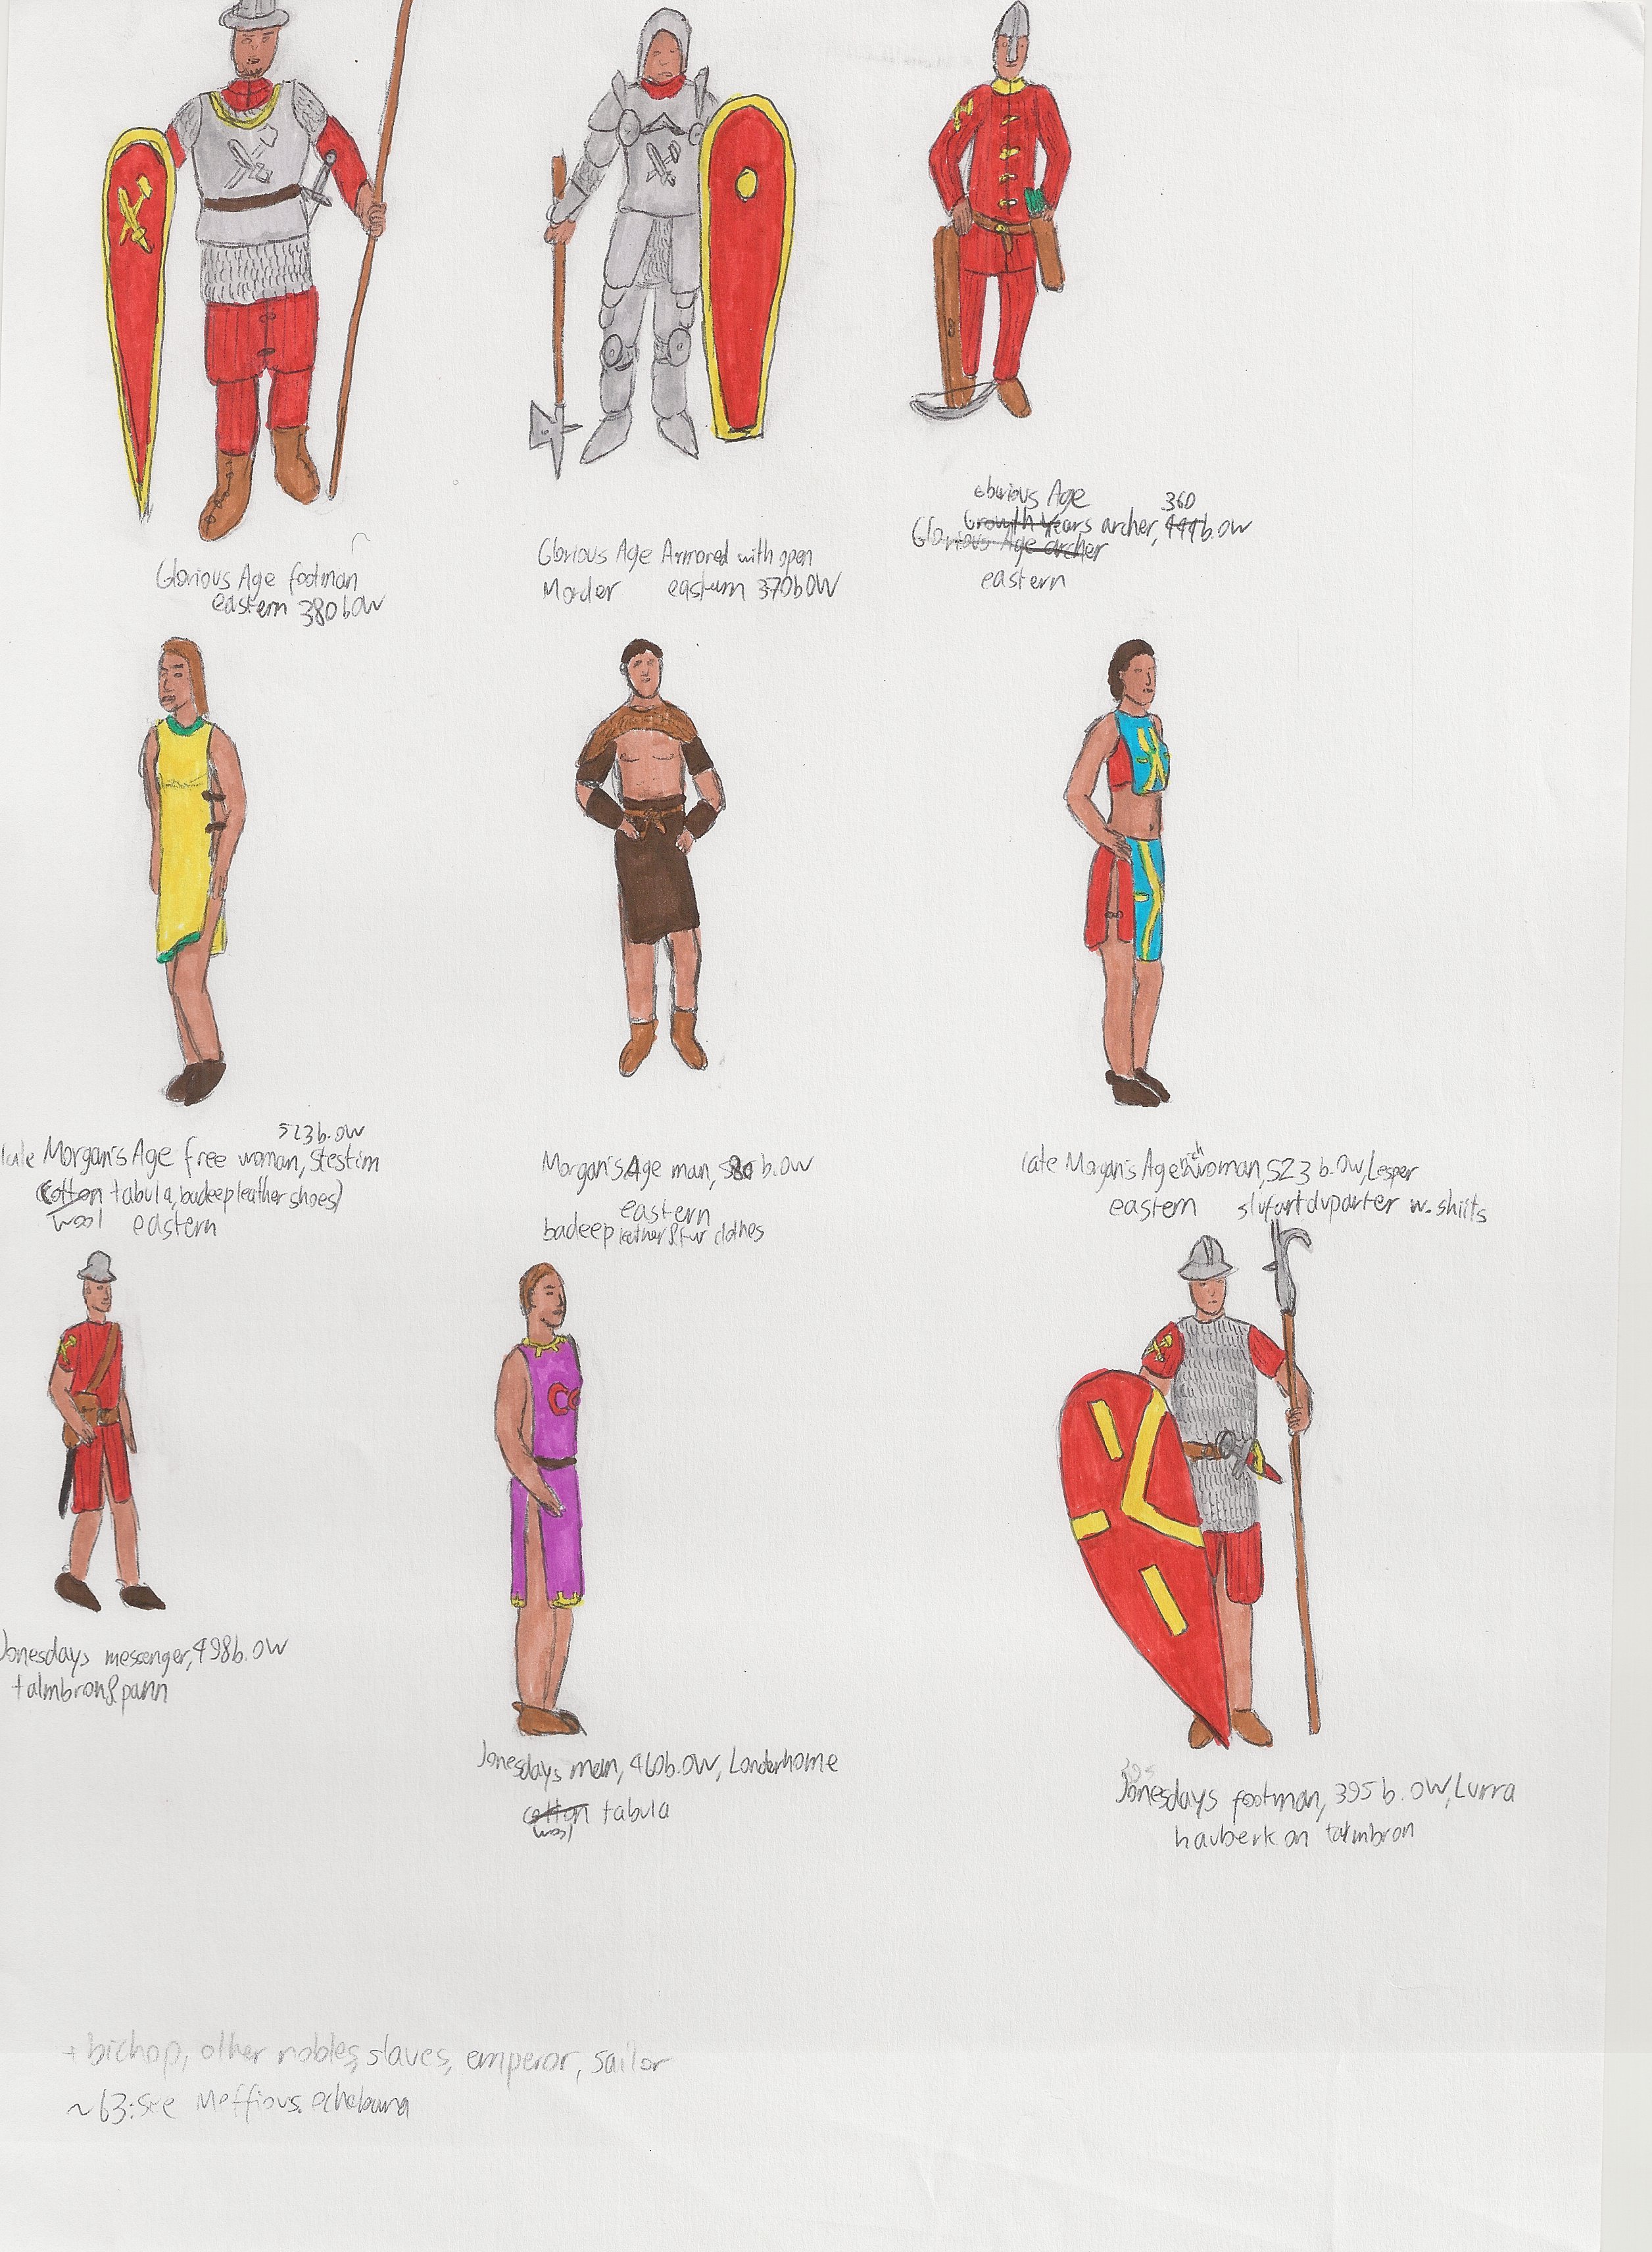 Glorious Age footman
eastern 380 b OW
Glorious Age Armored with open
Morder eastern 370 b OW
Glorious Age
360
Growth Years archer, 444 b. OW
Glorious Age archer
eastern
523 b. OW
late Morgan's Age free woman, Stestim
(cotton tabula, badeep leather shoes)
wool eastern
Morgan's Age man, 580 b. OW
eastern
badeep leather & fur clothes
late Morgan's Age rich woman, 523 b. OW, Lesper
eastern slufartduparter w. shiits
Jonesdays messenger, 498 b. OW
talmbron & pann
Jonesdays man, 460 b. OW, Londerhome
cotton tabula
wool
Jonesdays footman, 395 b. OW, Lurra
hauberk on talmbron
+ bichop, other nobles, slaves, emperor, sailor
~63: see